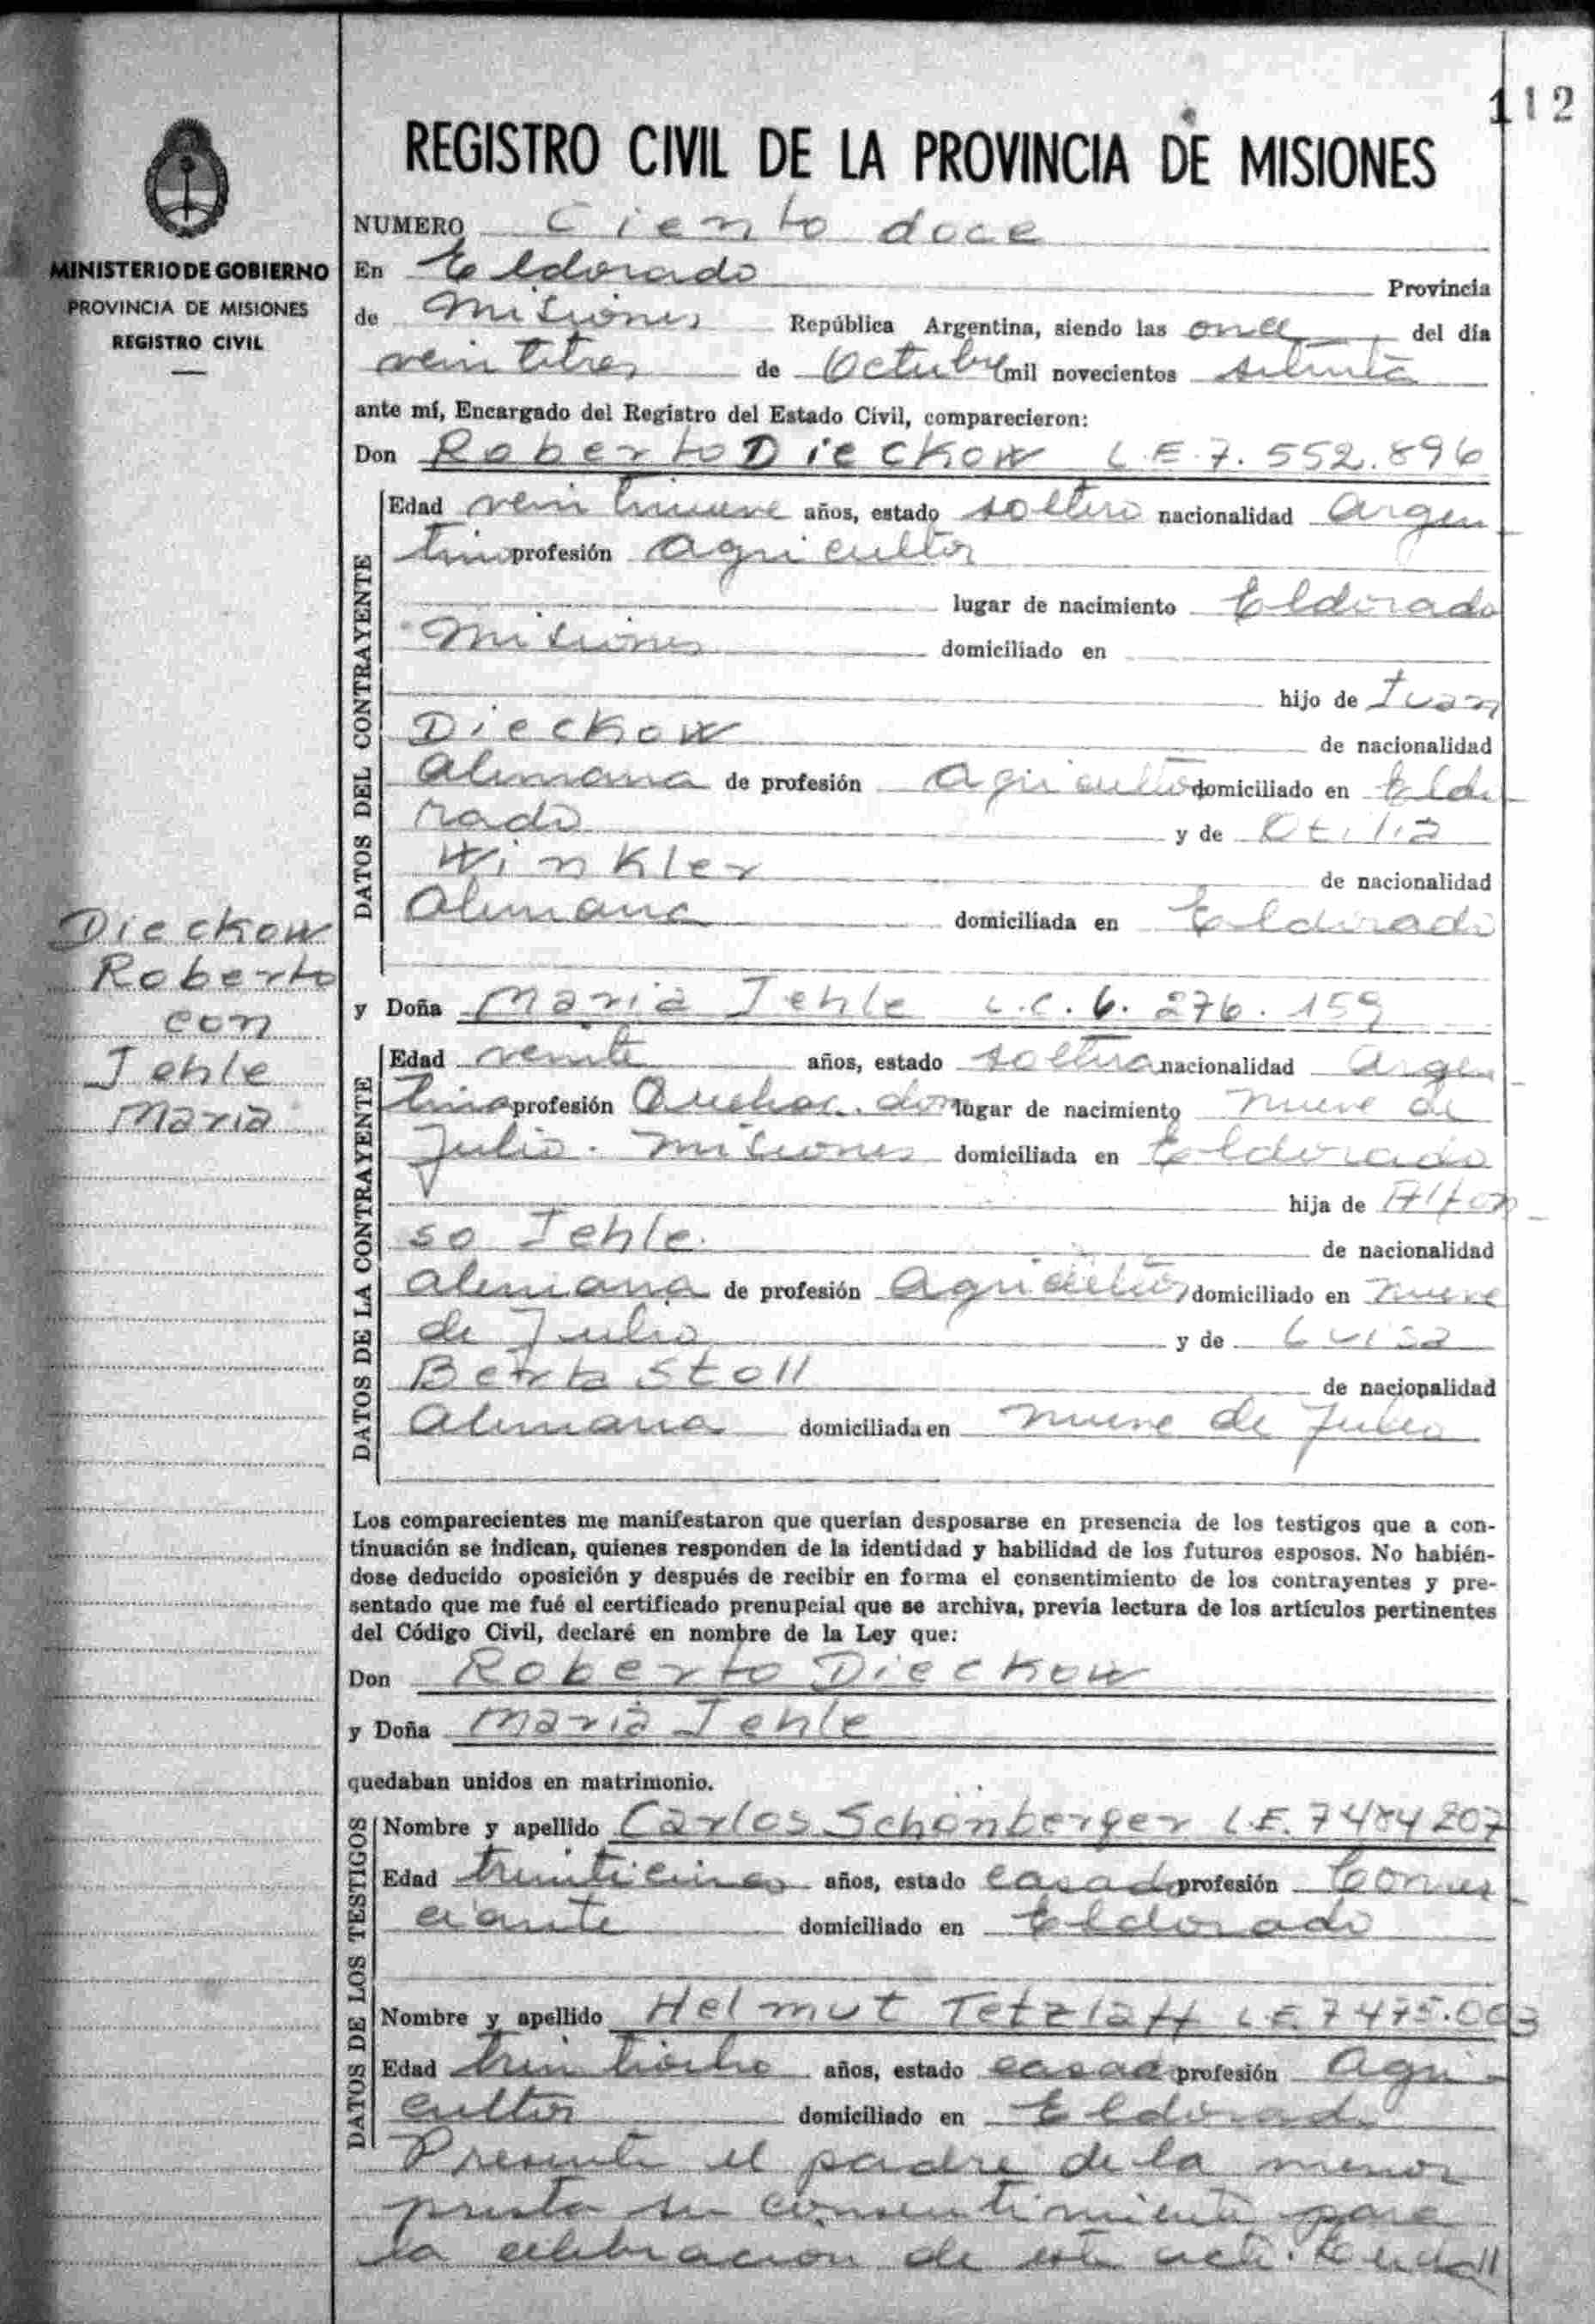 112
REGISTRO CIVIL DE LA PROVINCIA DE MISIONES
MINISTERIO DE GOBIERNO
PROVINCIA DE MISIONES
REGISTRO CIVIL
NUMERO Ciento doce
En Eldorado Provincia
de Misiones República Argentina, siendo las once del día
veintitres de Octubre mil novecientos setenta
ante mí, Encargado del Registro del Estado Civil, comparecieron:
Don Roberto Dieckow L.E. 7.552.896
DATOS DEL CONTRAYENTE
Edad veintinueve años, estado soltero nacionalidad argen
tino profesión agricultor
lugar de nacimiento Eldorado
Misiones domiciliado en
hijo de Juan
Dieckow de nacionalidad
alemana de profesión agricultor domiciliado en Eldo
rado y de Otilia
Winkler de nacionalidad
alemana domiciliada en Eldorado
Dieckow
Roberto
con
Jehle
Maria
y Doña Maria Jehle L.C. 6.276.159
DATOS DE LA CONTRAYENTE
Edad veinte años, estado soltera nacionalidad argen
tina profesión Quehac. dom lugar de nacimiento nueve de
Julio. Misiones domiciliada en Eldorado
hija de Alfon
so Jehle. de nacionalidad
alemana de profesión agricultor domiciliado en nueve
de Julio y de Luisa
Berta Stoll de nacionalidad
alemana domiciliada en nueve de Julio
Los comparecientes me manifestaron que querían desposarse en presencia de los testigos que a con-
tinuación se indican, quienes responden de la identidad y habilidad de los futuros esposos. No habién-
dose deducido oposición y después de recibir en forma el consentimiento de los contrayentes y pre-
sentado que me fué el certificado prenupcial que se archiva, previa lectura de los artículos pertinentes
del Código Civil, declaré en nombre de la Ley que:
Don Roberto Dieckow
y Doña Maria Jehle
quedaban unidos en matrimonio.
DATOS DE LOS TESTIGOS
Nombre y apellido Carlos Schönberger L.E. 7484207
Edad treinticinco años, estado casado profesión Comer
ciante domiciliado en Eldorado
Nombre y apellido Helmut Tetzlaff L.E. 7475.003
Edad treintiocho años, estado casado profesión Agri
cultor domiciliado en Eldorado
Presente el padre de la menor
presta su consentimiento para
la celebración de este acto.